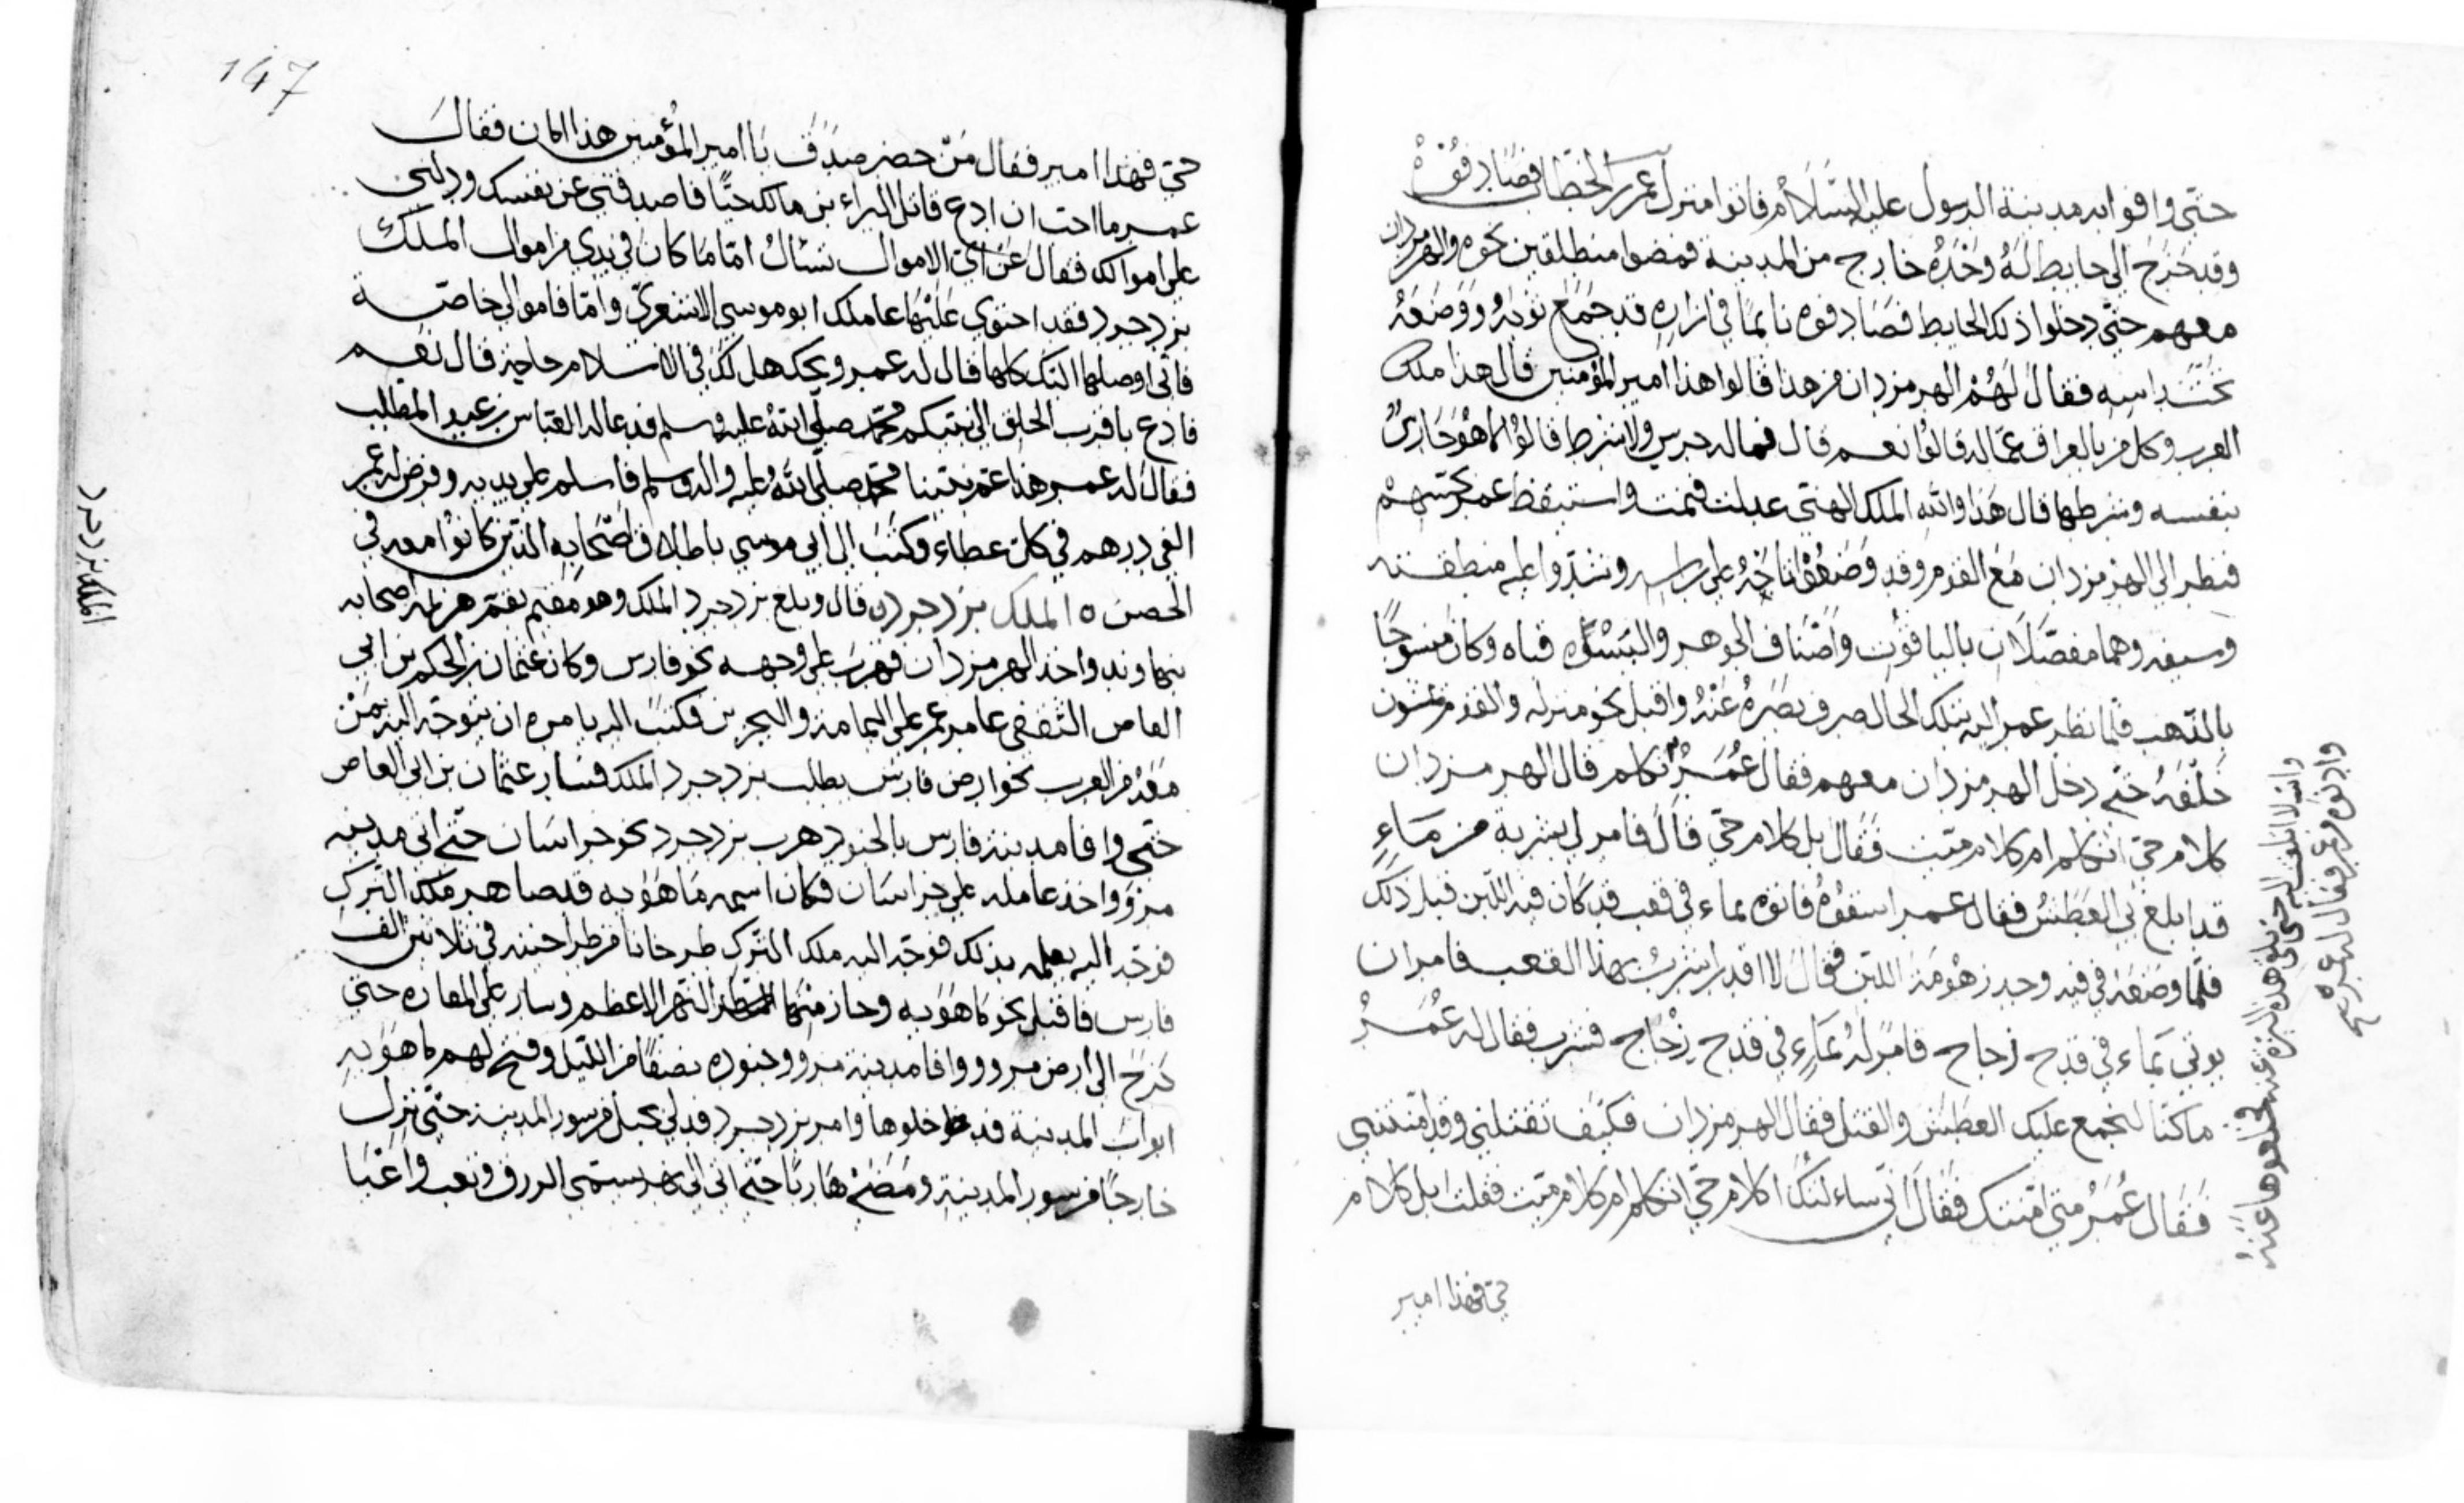 حتى وافوا به مدينة الرسول عليه السلام فاتوا منزل عمر بن الخطاب فصادفوه
وقد خرج الى حايط له وحده خارج من المدينة فمضوا منطلقين نحوه والهرمزدان
معهم حتى دخلوا ذلك الحايط فصادفوه نايما في ازاره قد جمع ثوبه ووضعه
تحت راسه فقال لهم الهرمزدان من هذا قالوا هذا امير المؤمنين قال هذا ملك
العرب وكل من بالعراق عماله قالوا نعم قال فماله حرس ولا شرط قالوا انما هو حارس
نفسه وشرطها قال هذا والله الملك الهني عدلت فنمت واستيقظ عمر
فنظر الى الهرمزدان مع القوم وقد وضعوا تاجه على راسه وشدوا عليه منطقته
وسيفه وهما مفصلان بالياقوت واصناف الجوهر والبسوه قباه وكان منسوجا
بالذهب فلما نظر عمر اليه بتلك الحال صرف بصره عنه واقبل نحو منزله والقوم يمشون
خلفه حتى دخل الهرمزدان معهم فقال عمر تكلم قال الهرمزدان
كلام حي اتكلم ام كلام ميت فقال بل كلام حي قال فامر لي بشربة من ماء
قد ابلغ بي العطش فقال عمر اسقوه فاتوه بماء في قعب قد كان فيه اللبن قبل ذلك
فلما وضعه في فيه وجد زهومة اللبن فقال لا اقدر اشرب بهذا القعب فامر ان
يوتى بماء في قدح زجاج فامر له بماء في قدح زجاج فشرب فقال له عمر
ما كنا لنجمع عليك العطش والقتل فقال الهرمزدان فكيف تقتلني وقد امنتني
فقال عمر متى امنتك فقال اني سائلتك اكلام حي اتكلم ام كلام ميت فقلت بل كلام
حي فهذا امير
وادنوه من عمر فقال له عمر
والله لا انظر اليه حتى هذه البزة عنه فخلعوها عنه
147
حي فهذا امير فقال من حضر صدق يا امير المؤمنين هذا امان فقال
عمر ما احب ان ادع قاتل البراء بن مالك حيا فاصدقني عن نفسك ودلني
على اموالك فقال عن اي الاموال تسال اما ما كان في يدي من اموال الملك
يزدجرد فقد احتوى عليها عاملك ابو موسى الاشعري واما اموالي خاصة
فاني اوصلها اليك كلها قال له عمر ويحك هل لك في الاسلام حاجة قال نعم
فادع باقرب الخلق الى نبيكم محمد صلى الله عليه وسلم فدعا له العباس بن عبد المطلب
فقال له عمر هذا عم نبينا محمد صلى الله عليه واله وسلم فاسلم على يديه وفرض له عمر
الفي درهم في كل عطاء وكتب الى ابي موسى باطلاق اصحابه الذين كانوا معه في
الحصن ه الملك يزدجرد ه قال وبلغ يزدجرد الملك وهو مقيم بقم هزيمة اصحابه
بنهاوند واخذ الهرمزدان فهرب على وجهه نحو فارس وكان عثمان بن الحكم بن ابي
العاص الثقفي عامر عمر على اليمامة والبحرين فكتب اليه يامره ان يتوجه اليه بمن
معه من العرب نحو ارض فارس يطلب يزدجرد الملك فسار عثمان بن ابي العاص
حتى وافا مدينة فارس بالجنود هرب يزدجرد نحو خراسان حتى اتى مدينة
مرو واخذ عامله على خراسان فكان اسمه ماهويه قد صاهر ملك الترك
فوجه اليه يعلمه بذلك فوجه اليه ملك الترك طرخانا من طراخنته في ثلاثين الف
فارس فاقبل نحو ماهويه وجاز النهر الاعظم وسار على المفازه حتى
خرج الى ارض مرو ووافا مدينة مرو وجنوده نصفا من الليل وفتح لهم ماهويه
ابواب المدينة فدخلوها وامر يزدجرد فدلي بحبل من سور المدينة حتى نزل
خارجا من سور المدينة ومضى هاربا حتى اتى الى نهر يسمى الزرق وتعب واعيا
الملك يزدجرد